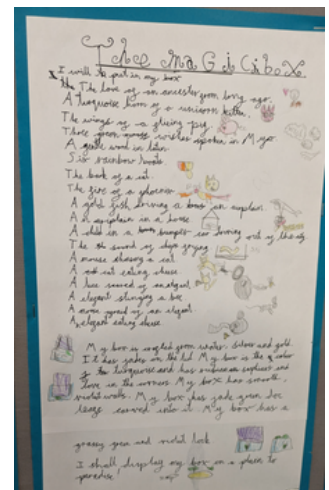 The Magic box
I will put in my box
The love of an ancestor from long ago.
A turquoise horn of a unicorn kitten.
The wings of a flying pig.
Three green wishes spoken in
A word in latin.
Six rainbow
The bark of a cat.
The fire of a
A gold fish driving a an airplain.
A airplain in a house
A child in a bumper car driving out of the sky
The sound of chips frying
A mouse chasing a cat
A cat eating cheese
A bee scared by an
A elegant stinging a bee
A mouse scared of an elegant
An elegant eating cheese
My box is from water, silver and gold.
It has jades on the lid My box is the color
turquoise and has and
love in the corners My box has smooth,
violet walls. My box has jade green
carved into it My box has a
grassy green and violet lock
I shall display my box in a place to
paradise.